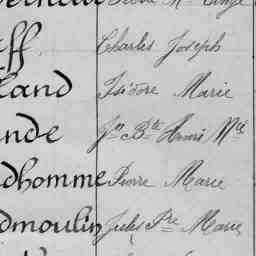 ff Charles Joseph
land Isidore Marie
nde Jn Bte Henri Mie
dhomme Pierre Marie
dmoulin Jules Pre Marie